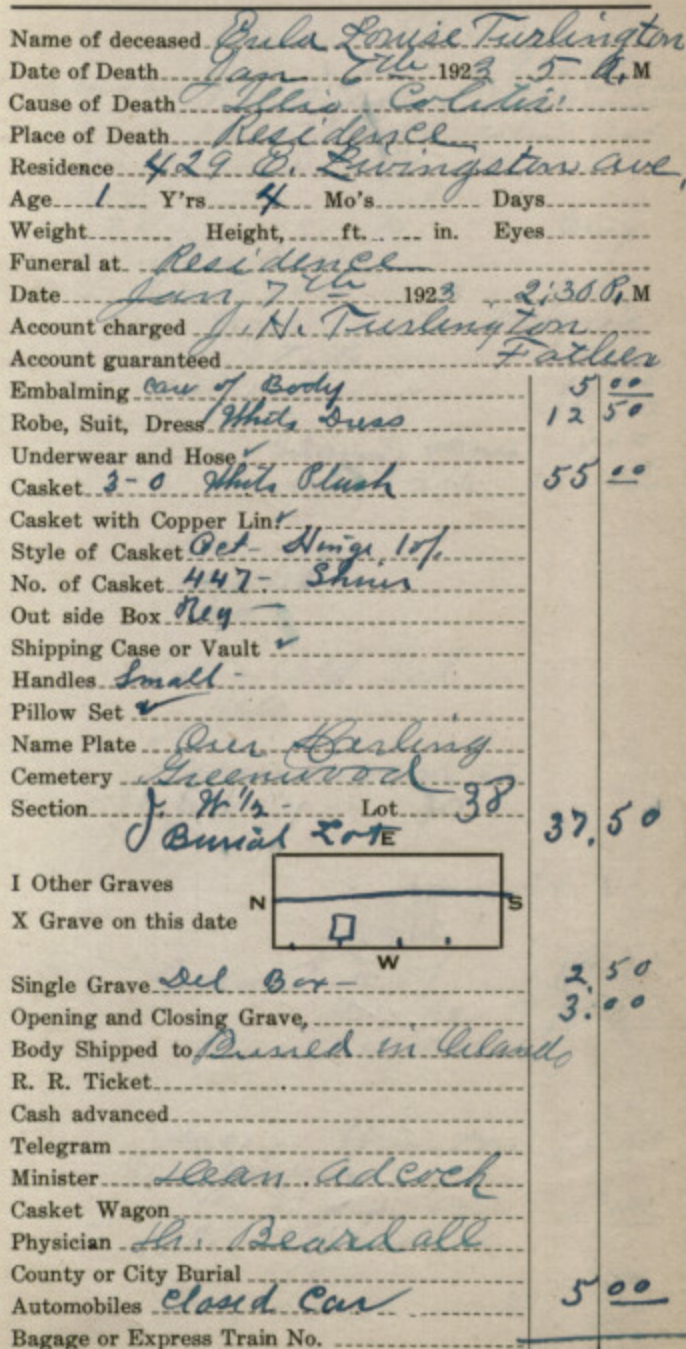 Name of deceased Eula Louise Turlington
Date of Death Jan 6th 1923 5 A.M
Cause of Death Illio Colitis
Place of Death Residence
Residence 429 E. Livingston ave,
Age 1 Y'rs 4 Mo's Days
Weight Height, ft. in. Eyes
Funeral at Residence
Date Jan 7th 1923 2:30 P.M
Account charged J. H. Turlington
Account guaranteed Father
Embalming care of Body 5 00
Robe, Suit, Dress White Dress 12 50
Underwear and Hose ✓
Casket 3-0 White Plush 55 00
Casket with Copper Lin ✓
Style of Casket Oct- Hinge
No. of Casket 447-
Out side Box Reg -
Shipping Case or Vault ✓
Handles Small -
Pillow Set ✓
Name Plate Our Darling
Cemetery Greenwood
Section J. W 1/2 - Lot 38
Burial Lot 37.50
E
I Other Graves
N S
X Grave on this date
W
Single Grave Del Box - 2.50
Opening and Closing Grave, 3.00
Body Shipped to Buried in Orlando
R. R. Ticket
Cash advanced
Telegram
Minister Dean Adcock
Casket Wagon
Physician Dr. Beardall
County or City Burial
Automobiles Closed Car 5 00
Bagage or Express Train No.